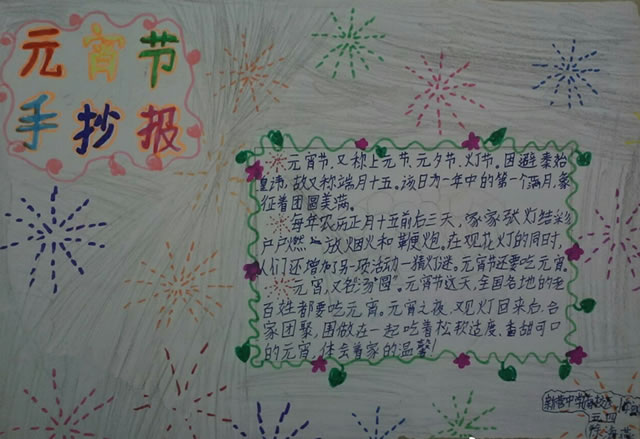 元宵节
手抄报
元宵节,又称上元节、元夕节、灯节。因避秦始
皇讳,故又称端月十五。该日为一年中的第一个满月,象
征着团圆美满。
每年农历正月十五前后三天,家家张灯结彩
户户燃放烟火和鞭炮。在观花灯的同时,
人们还增加另一项活动—猜灯谜。元宵节还要吃元宵。
元宵,又名“汤圆”。元宵节这天,全国各地的老
百姓都要吃元宵。元宵之夜,观灯回来后,合
家团聚,围做在一起吃着松软适度、香甜可口
的元宵,体会着家的温馨!
五四